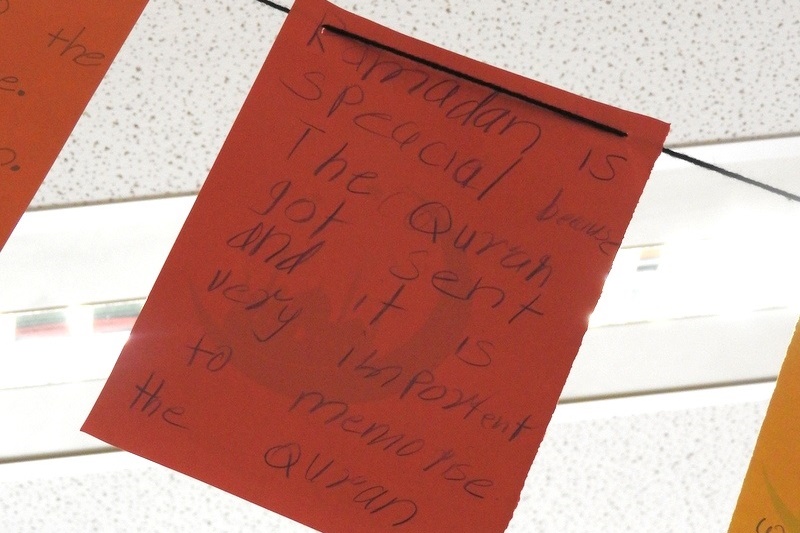 the
e.
Ramadan is
Specucial because
The Quran
got sent
and it is
very importent
to memorise
the Quran